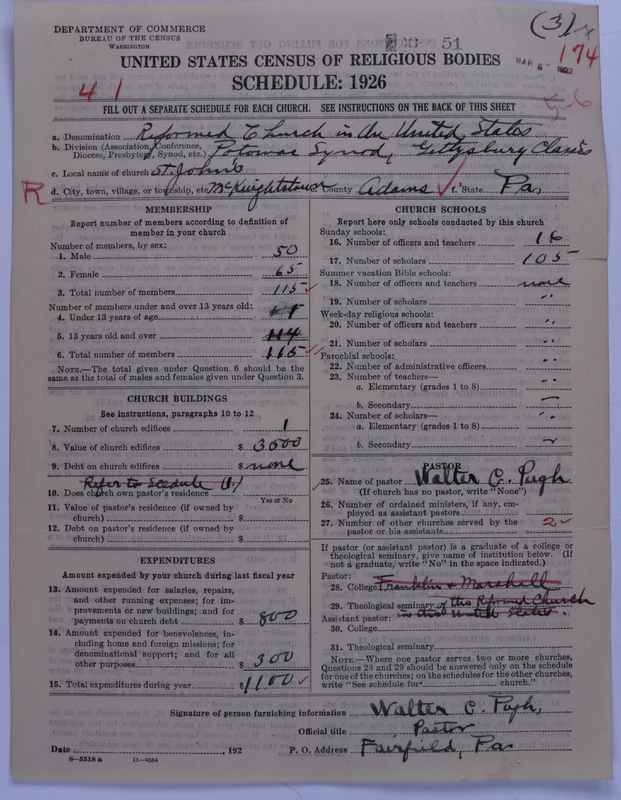 (3)
DEPARTMENT OF COMMERCE
BUREAU OF THE CENSUS
WASHINGTON
51
174
MAR 8 - 1927
UNITED STATES CENSUS OF RELIGIOUS BODIES
SCHEDULE: 1926
41
FILL OUT A SEPARATE SCHEDULE FOR EACH CHURCH. SEE INSTRUCTIONS ON THE BACK OF THIS SHEET
a. Denomination Reformed Church in the United States
b. Division (Association, Conference, Diocese, Presbytery, Synod, etc.) Potomac Synod, Gettysburg Classis
c. Local name of church St. Johns
R
d. City, town, village, or township, etc. McKnightstown County Adams f. State Pa.
MEMBERSHIP
Report number of members according to definition of
member in your church
Number of members, by sex:
1. Male 50
2. Female 65
3. Total number of members 115
Number of members under and over 13 years old:
4. Under 13 years of age
5. 13 years old and over 114
6. Total number of members 115
NOTE.—The total given under Question 6 should be
same as the total of males and females given under Question 3.
CHURCH BUILDINGS
See instructions, paragraphs 10 to 12
7. Number of church edifices 1
8. Value of church edifices $ 3500
9. Debt on church edifices $ none
Refer to Scedule (1)
10. Does church own pastor's residence
Yes or No
11. Value of pastor's residence (if owned by
church) $
12. Debt on pastor's residence (if owned by
church) $
EXPENDITURES
Amount expended by your church during last fiscal year
13. Amount expended for salaries, repairs,
and other running expenses; for im-
provements or new buildings; and for
payments on church debt $ 800
14. Amount expended for benevolences, in-
cluding home and foreign missions; for
denominational support; and for all
other purposes $ 300
15. Total expenditures during year $ 1100
CHURCH SCHOOLS
Report here only schools conducted by this church
Sunday schools:
16. Number of officers and teachers 16
17. Number of scholars 105
Summer vacation Bible schools:
18. Number of officers and teachers none
19. Number of scholars "
Week-day religious schools:
20. Number of officers and teachers "
21. Number of scholars "
Parochial schools:
22. Number of administrative officers
23. Number of teachers—
a. Elementary (grades 1 to 8) "
b. Secondary
24. Number of scholars—
a. Elementary (grades 1 to 8)
b. Secondary
PASTOR
25. Name of pastor Walter C. Pugh
(If church has no pastor, write "None")
26. Number of ordained ministers, if any, em-
ployed as assistant pastors
27. Number of other churches served by the
pastor or his assistants 2
If pastor (or assistant pastor) is a graduate of a college or
theological seminary, give name of institution below. (If
not a graduate, write "No" in the space indicated.)
Pastor:
28. College Franklin & Marshall
29. Theological seminary of the Reformed Church
in the United States
Assistant pastor:
30. College
31. Theological seminary
NOTE.—Where one pastor serves two or more churches,
Questions 28 and 29 should be answered only on the schedule
for one of the churches; on the schedules for the other churches,
write "See schedule for church."
Signature of person furnishing information Walter C. Pugh,
Official title Pastor
Date , 192 P. O. Address Fairfield, Pa
8—5518 a 11—9054